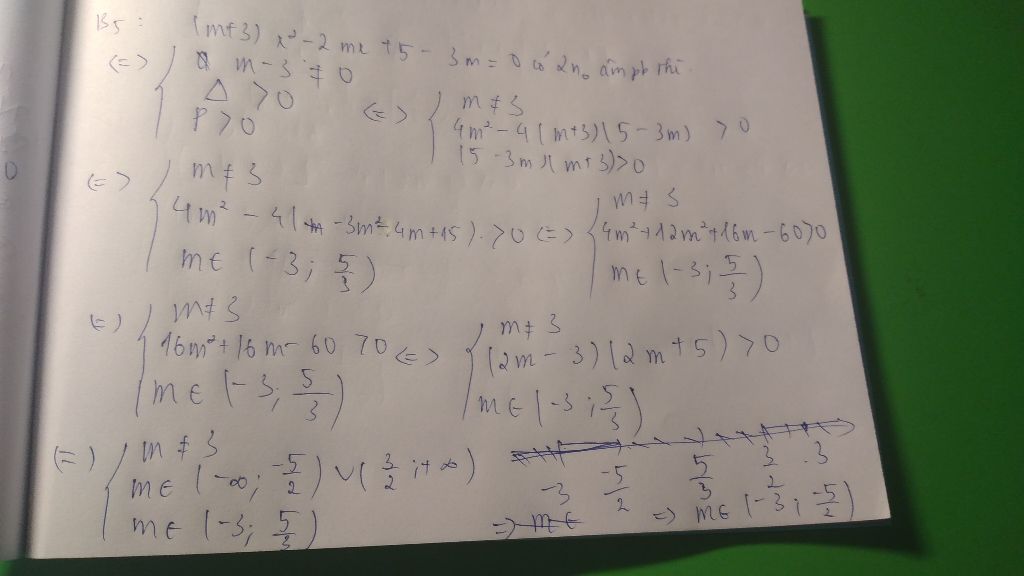 B5: (m+3) x² - 2mx + 5 - 3m = 0 có 2 n₀ âm pb thì
<=> { m - 3 ≠ 0
Δ > 0
P > 0
<=> { m ≠ 3
4m² - 4(m+3)(5 - 3m) > 0
(5 - 3m)(m+3) > 0
<=> { m ≠ 3
4m² - 4(-3m² - 4m + 15) > 0
m ∈ (-3; 5/3)
<=> { m ≠ 3
4m² + 12m² + 16m - 60 > 0
m ∈ (-3; 5/3)
<=> { m ≠ 3
16m² + 16m - 60 > 0
m ∈ (-3; 5/3)
<=> { m ≠ 3
(2m - 3)(2m + 5) > 0
m ∈ (-3; 5/3)
<=> { m ≠ 3
m ∈ (-∞; -5/2) ∪ (3/2; +∞)
m ∈ (-3; 5/3)
-3 -5/2 5/3 3/2 3
=> m ∈
=> m ∈ (-3; -5/2)
0